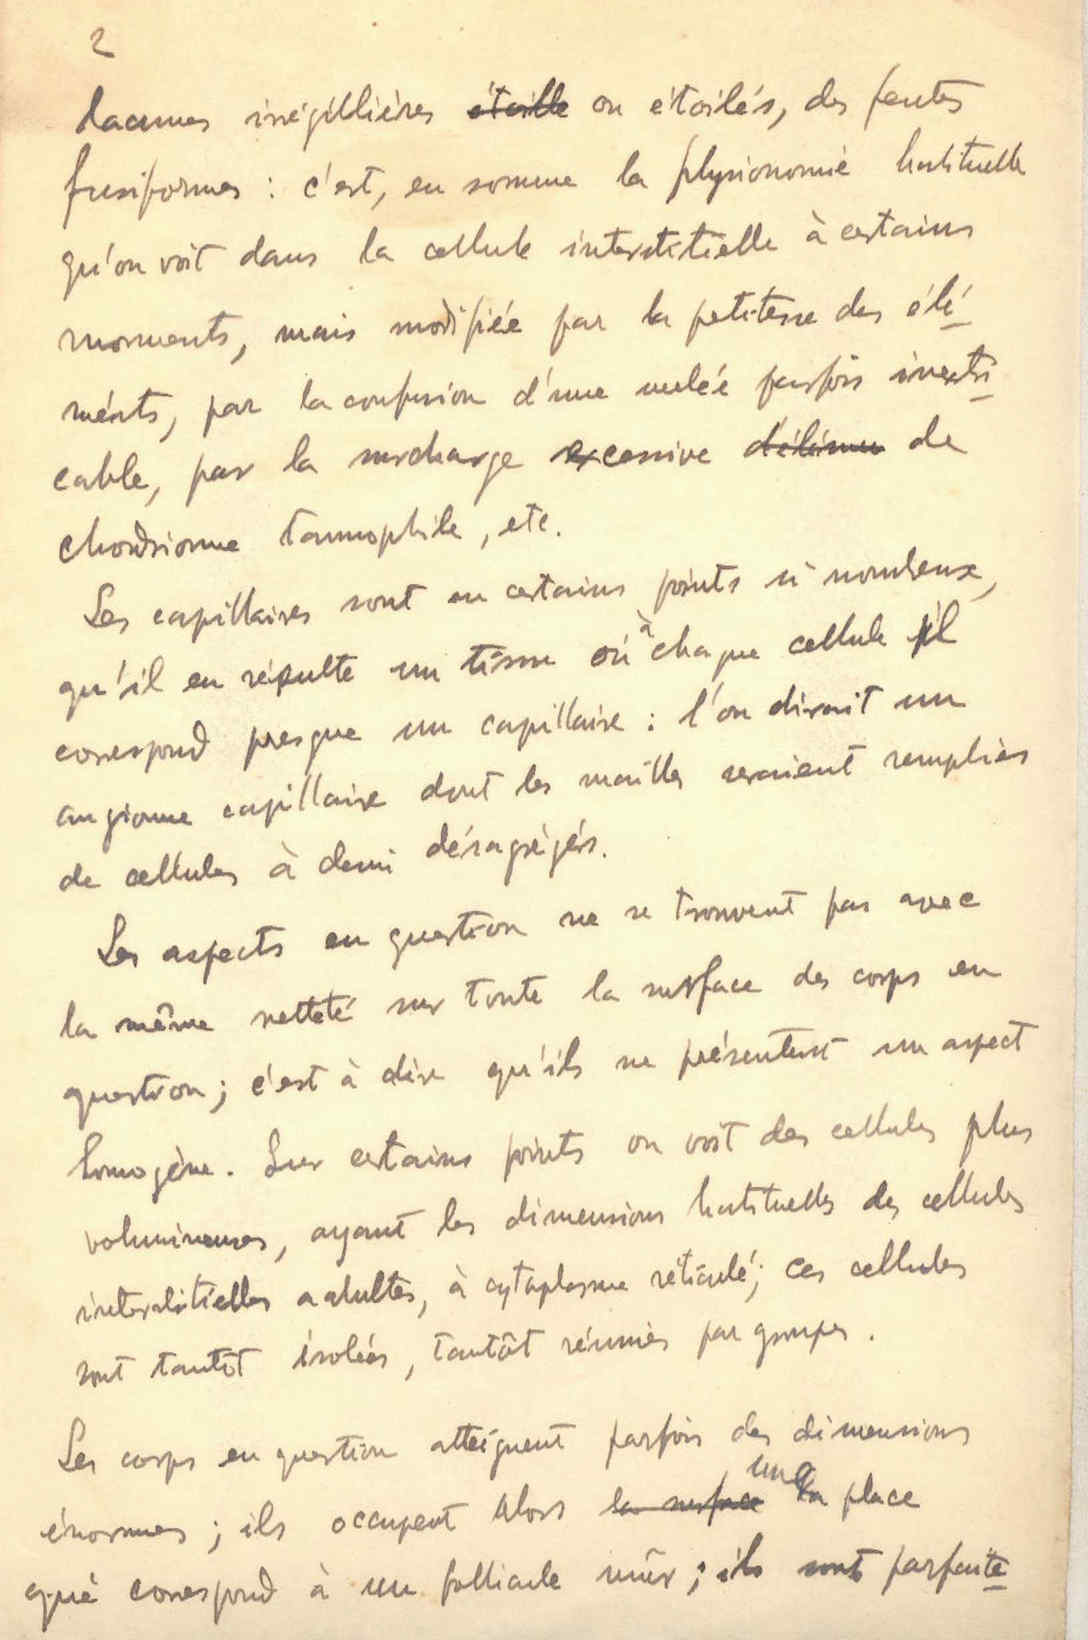 2
lacunes irrégillières étoille ou étoilés, des fentes
fusiformes : c'est, en somme la physionomie habituelle
qu'on voit dans la cellule interstitielle à certains
moments, mais modifiée par la petitesse des élé-
ments, par la confusion d'une mêlée parfois inextri-
cable, par la surcharge excessive de
chondriome tannophile, etc.
Les capillaires sont en certains points si nombeux,
qu'il en résulte un tissu où à chaque cellule il
correspond presque un capillaire : l'on dirait un
angiome capillaire dont les mailles seraient remplies
de cellules à demi désagrégés.
Les aspects en question ne se trouvent pas avec
la même netteté sur toute la surface des corps en
question ; c'est à dire qu'ils ne présentent un aspect
homogène. Sur certains points on voit des cellules plus
volumineuses, ayant les dimensions habituelles des cellules
interstitielles adultes, à cytoplasme réticulé ; ces cellules
sont tantôt isolées, tantôt réunies par groupes.
Les corps en question atteignent parfois des dimensions
énormes ; ils occupent alors la surface une place
qui correspond à un follicule mûr ; ils sont parfaite-